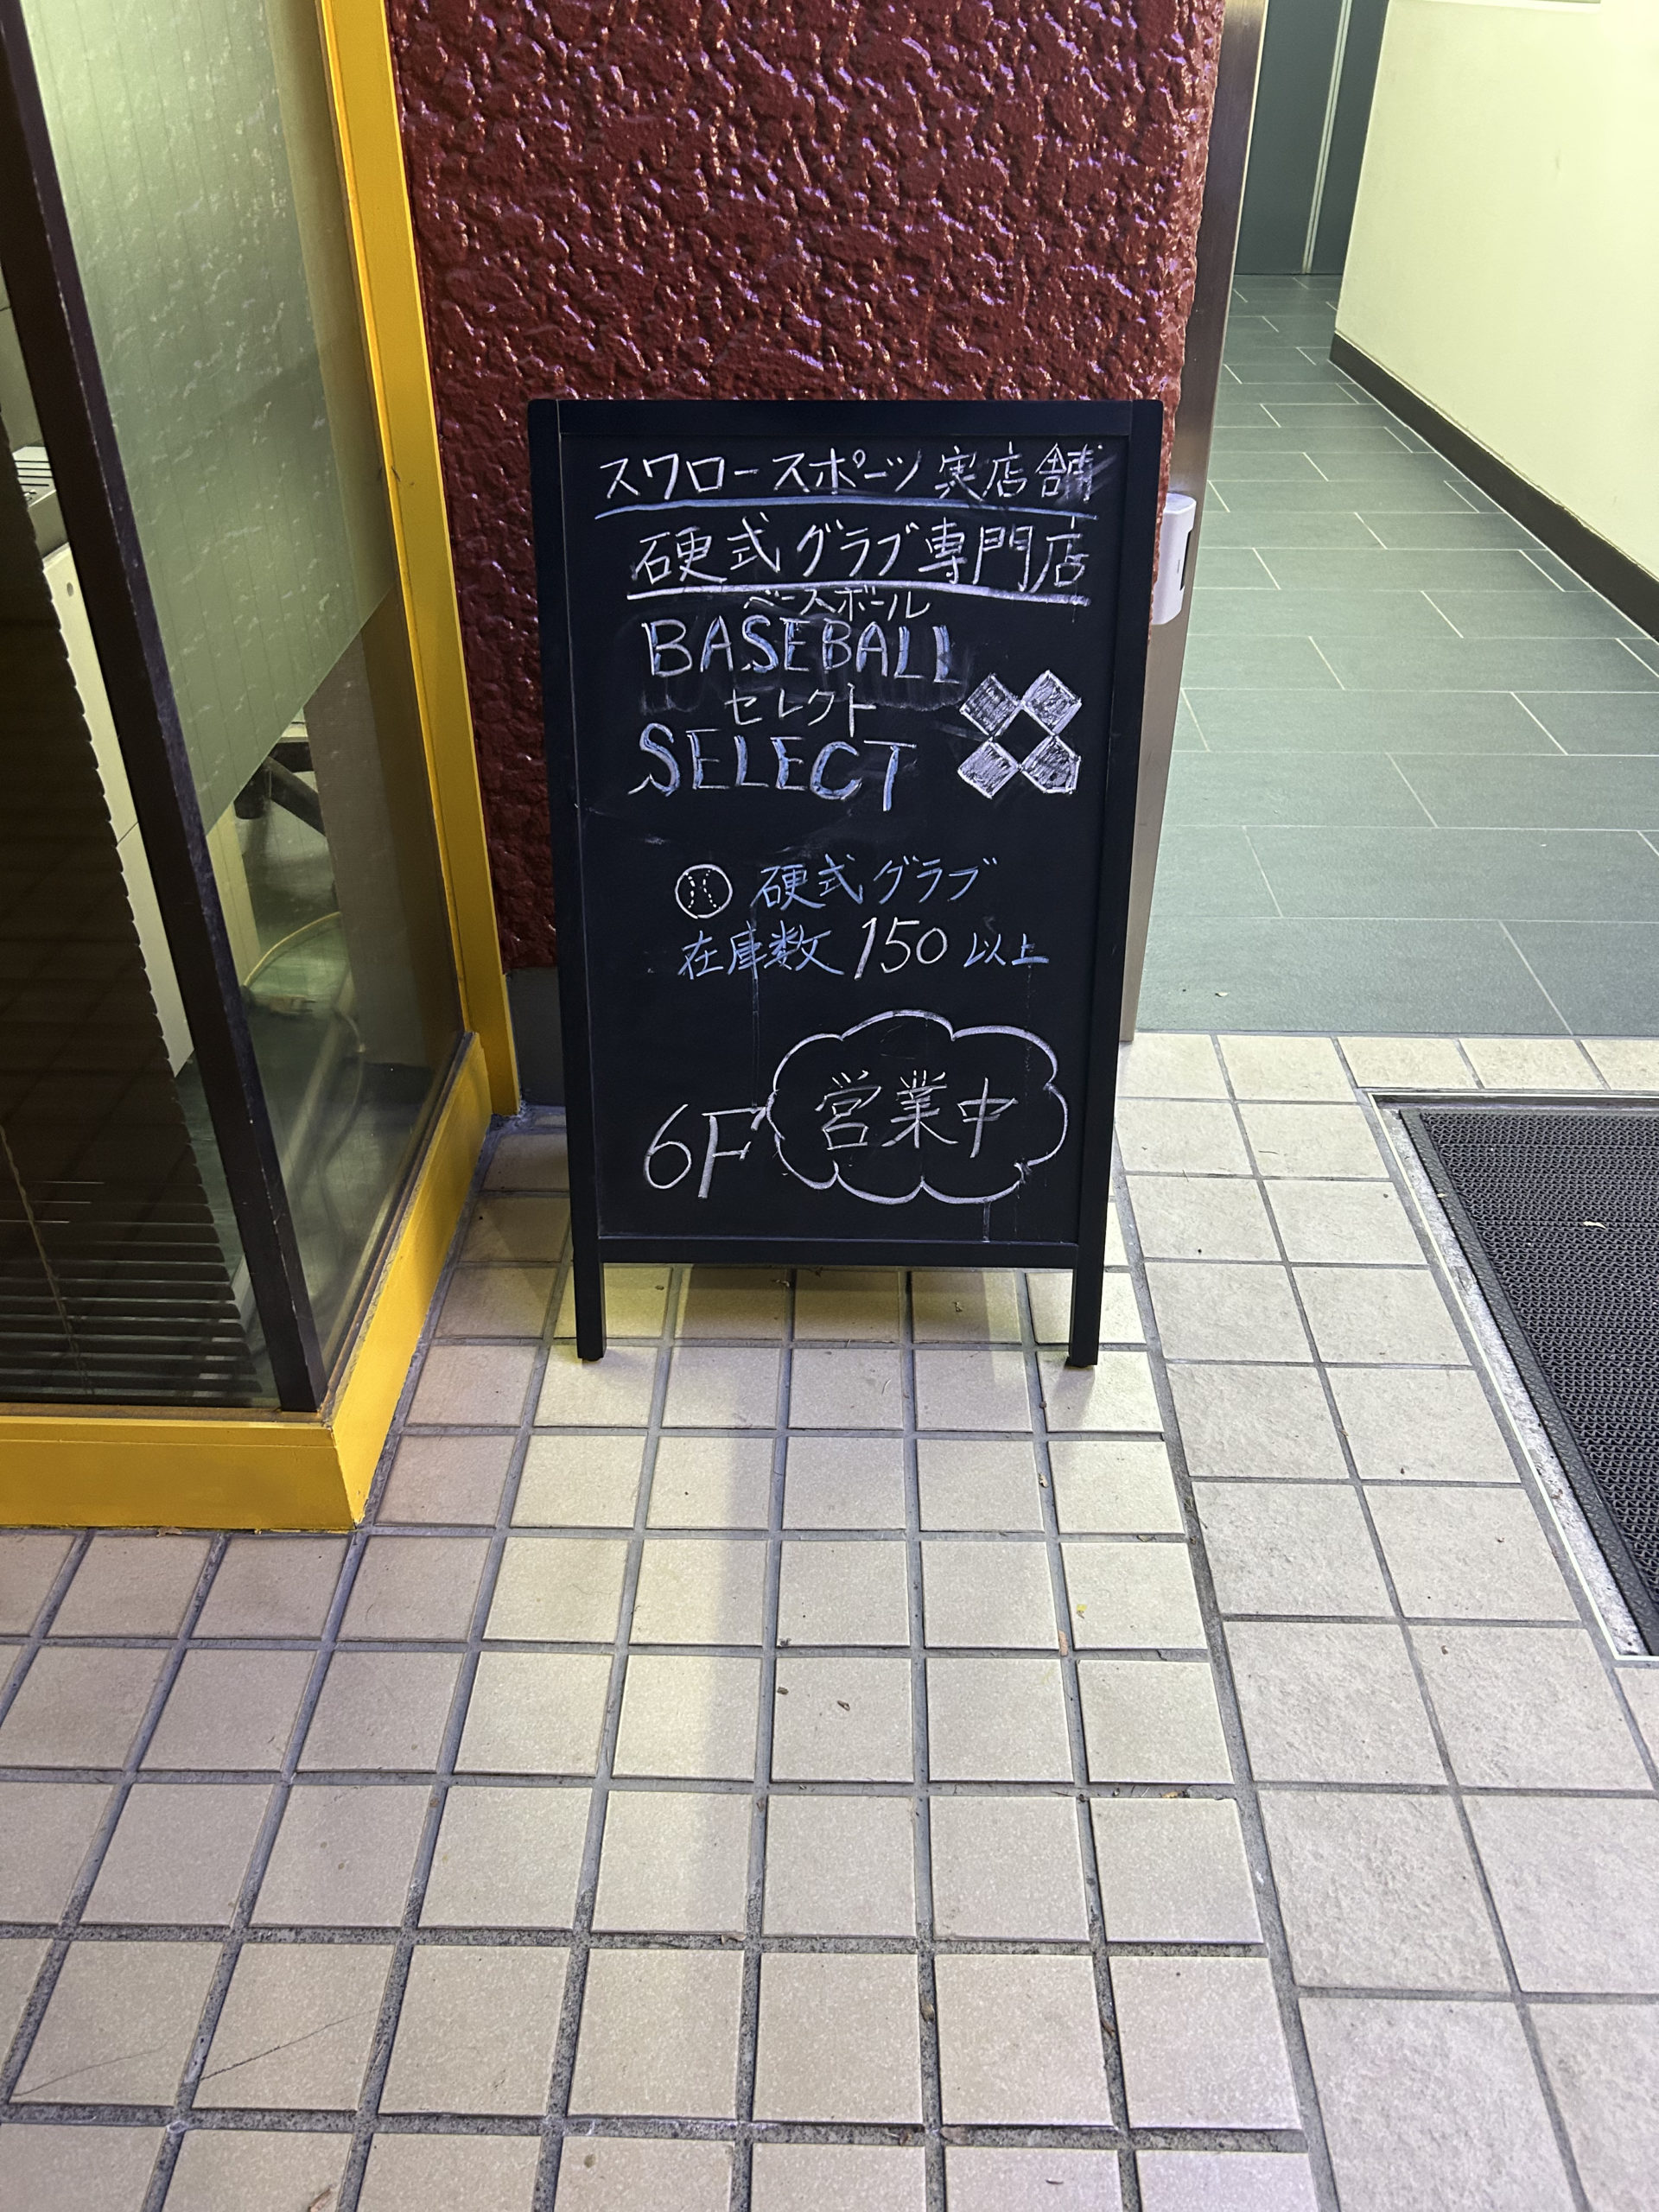 スワロースポーツ 実店舗
硬式グラブ専門店
ベースボール
BASEBALL
セレクト
SELECT
硬式グラブ
在庫数 150 以上
営業中
6F